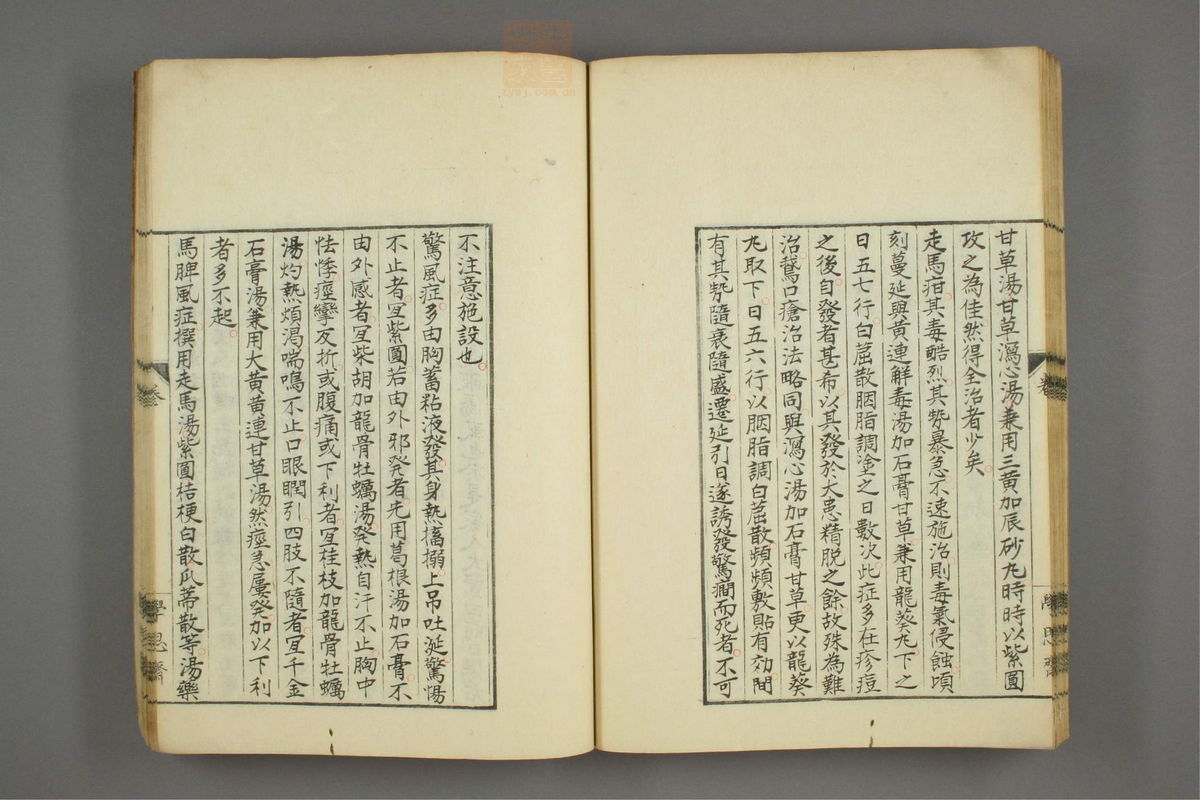 甘草湯甘草瀉心湯兼用三黃加辰砂丸時時以紫圓
攻之為佳然得全治者少矣
走馬疳其毒酷烈其勢暴急不速施治則毒氣侵蝕頃
刻蔓延與黃連解毒湯加石膏甘草兼用龍葵丸下之
日五七行白䓛散胭脂調塗之日數次此症多在疹痘
之後自發者甚希以其發於大患精脫之餘故殊為難
治鵞口瘡治法略同與瀉心湯加石膏甘草更以龍葵
丸取下日五六行以胭脂調白䓛散頻頻敷貼有効間
有其勢隨衰隨盛遷延引日遂誘發驚癇而死者不可
不注意施設也
驚風症多由胸蓄粘液發其身熱搐搦上吊吐涎驚惕
不止者宜紫圓若由外邪発者先用葛根湯加石膏不
由外感者宜柴胡加龍骨牡蠣湯発熱自汗不止胸中
怯悸痙攣反折或腹痛或下利者宜桂枝加龍骨牡蠣
湯灼熱煩渴喘鳴不止口眼瞤引四肢不隨者宜千金
石膏湯兼用大黃黃連甘草湯然痙急屢発加以下利
者多不起
馬脾風症撰用走馬湯紫圓桔梗白散瓜蒂散等湯藥
卷
學思齋
zysj.com.cn